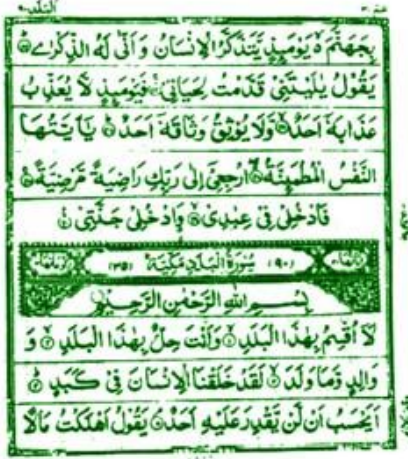 البلد ٩٠
عم ٣٠
بِجَهَنَّمَ ۙ يَوْمَىِٕذٍ يَّتَذَكَّرُ الْاِنْسَانُ وَ اَنّٰى لَهُ الذِّكْرٰى ؕ
يَقُوْلُ يٰلَيْتَنِىْ قَدَّمْتُ لِحَيَاتِىْ ۚ فَيَوْمَىِٕذٍ لَّا يُعَذِّبُ
عَذَابَهٗۤ اَحَدٌ ۙ وَّلَا يُوْثِقُ وَثَاقَهٗۤ اَحَدٌ ؕ يٰۤاَيَّتُهَا
النَّفْسُ الْمُطْمَىِٕنَّةُ ۖ ارْجِعِىْۤ اِلٰى رَبِّكِ رَاضِيَةً مَّرْضِيَّةً ۚ
فَادْخُلِىْ فِىْ عِبٰدِىْ ۙ وَادْخُلِىْ جَنَّتِىْ
(٩٠) سُوْرَةُ الْبَلَدِ مَكِّيَّةٌ (٣٥)
بِسْمِ اللّٰهِ الرَّحْمٰنِ الرَّحِيْمِ
لَاۤ اُقْسِمُ بِهٰذَا الْبَلَدِ ۙ وَاَنْتَ حِلٌّۢ بِهٰذَا الْبَلَدِ ۙ وَ
وَالِدٍ وَّمَا وَلَدَ ۙ لَقَدْ خَلَقْنَا الْاِنْسَانَ فِىْ كَبَدٍ ؕ
اَيَحْسَبُ اَنْ لَّنْ يَّقْدِرَ عَلَيْهِ اَحَدٌ ۘ يَقُوْلُ اَهْلَكْتُ مَالًا